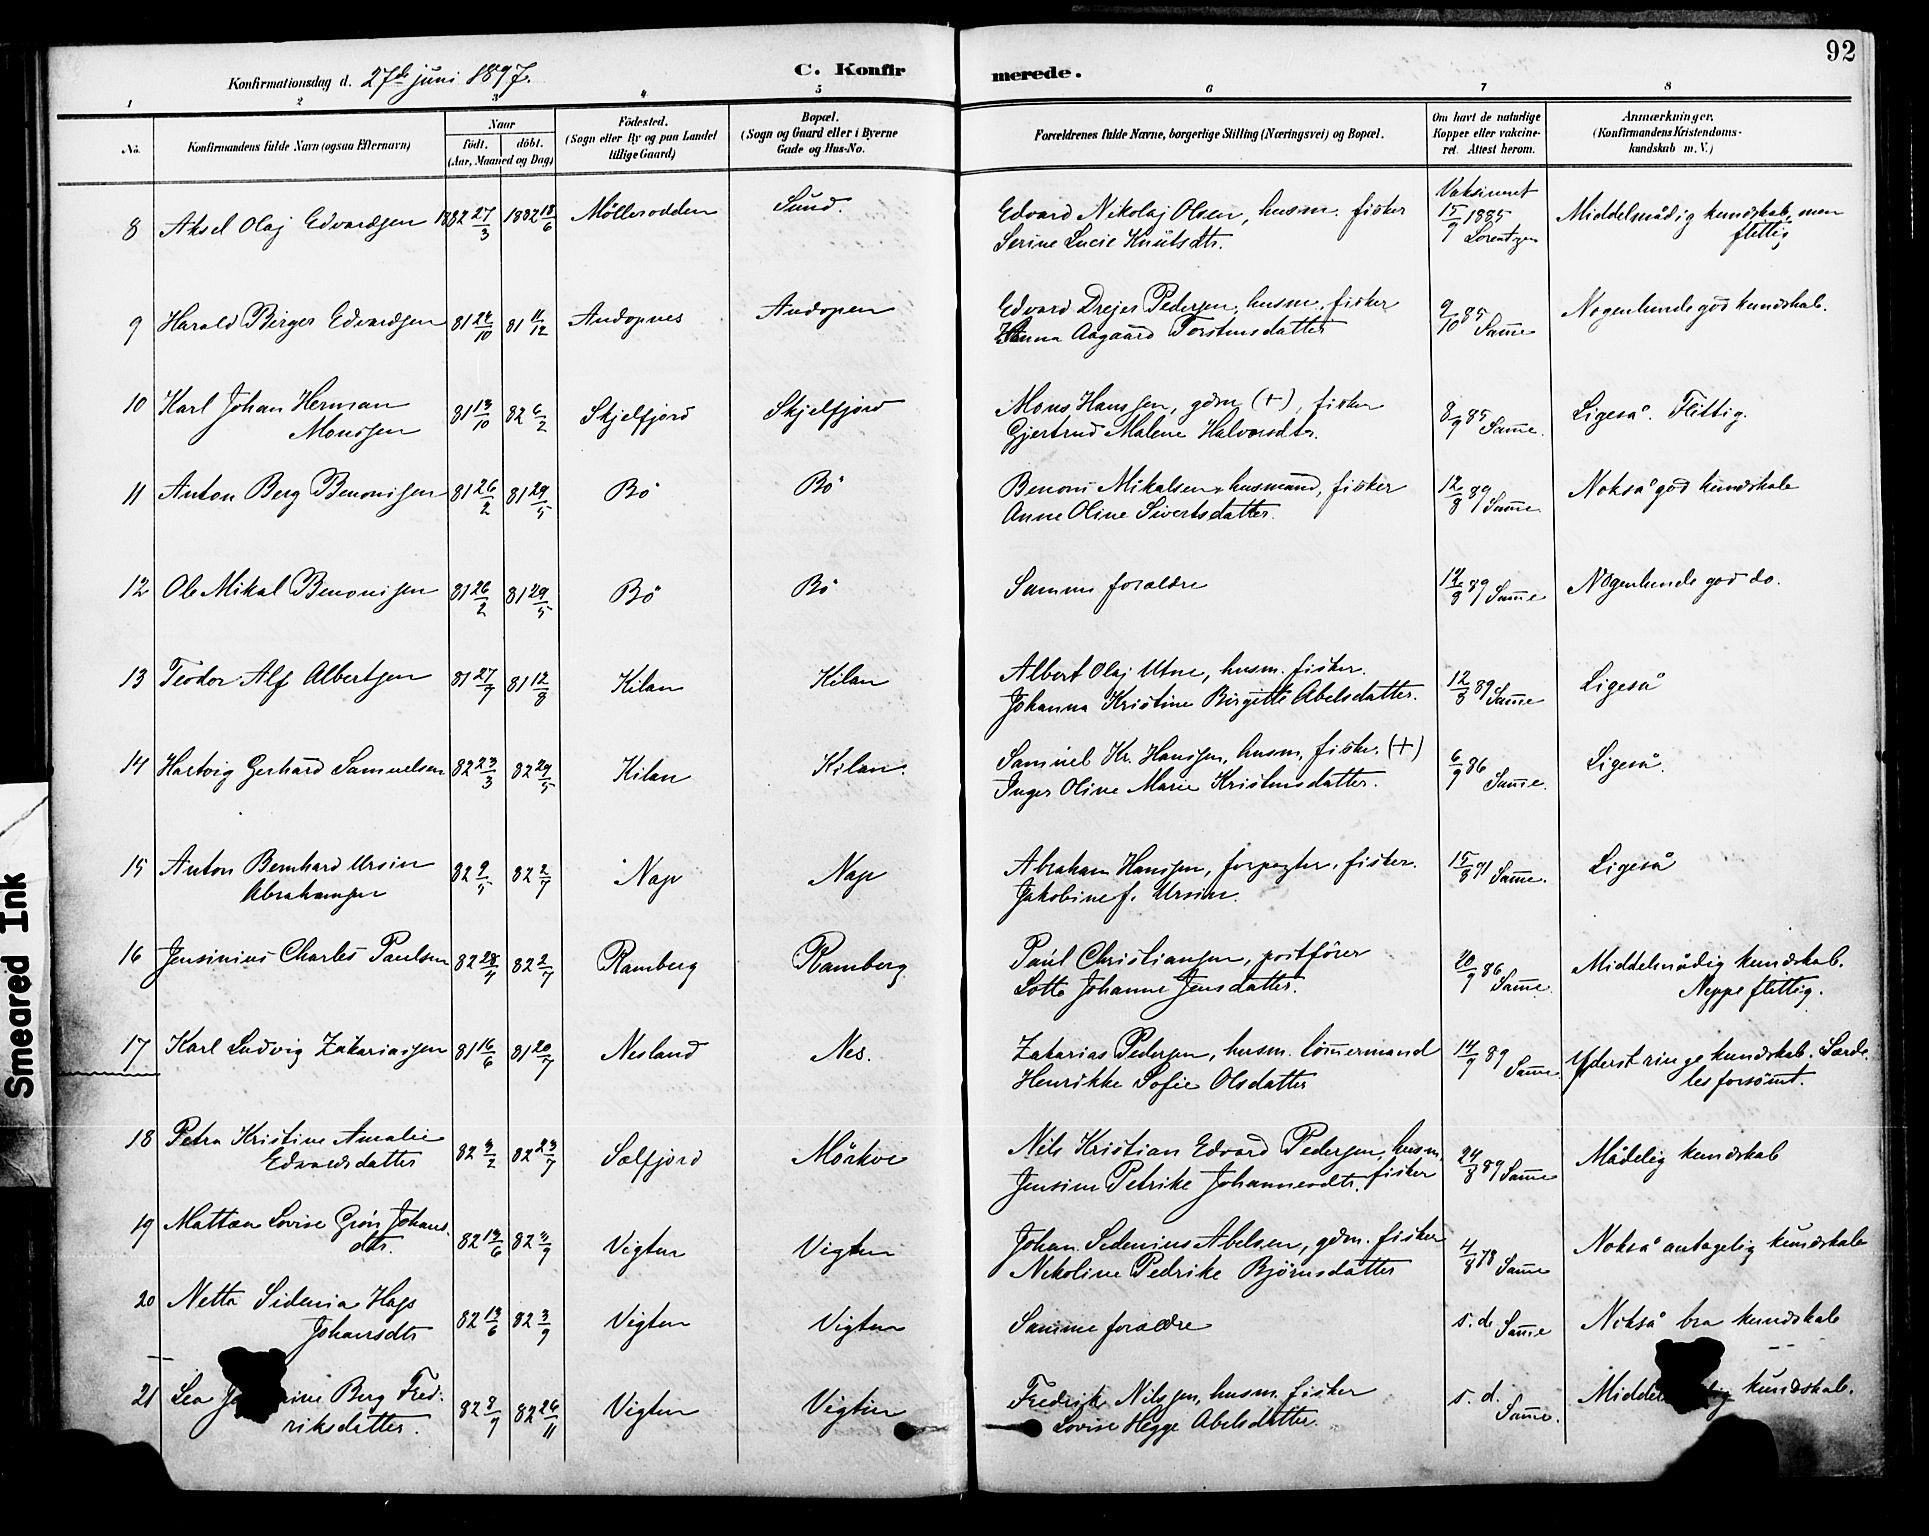 92
Konfirmationsdag d. 27de juni 1897.
C. Konfirmerede.
1 2 3 4 5 6 7 8
No.
Konfirmandens fulde Navn (ogsaa Efternavn)
Naar
födt. döbt.
(Aar, Maaned og Dag)
Födested.
(Sogn eller By og paa Landet
tillige Gaard)
Bopæl.
(Sogn og Gaard eller i Byerne
Gade og Hus-No.
Forældrenes fulde Navne, borgerlige Stilling (Næringsvei) og Bopæl.
Om havt de naturlige
Kopper eller vakcine-
ret. Attest herom.
Anmærkninger,
(Konfirmandens Kristendoms-
kundskab m. V.)
8 Aksel Olaj Edvardsen 1882 27/3 1882 18/6 Möllerodden Sund. Edvard Nikolaj Olsen, husm. fisker
Serine Lucie Knutsdtr.
Vaksineret
15/9 1885
Lorentzen
Middelmådig kundskab, men
flittig
9 Harald Birger Edvardsen 81 24/10 81 11/12 Andopnes Andopen Edvard Drejer Pedersen, husm. fisker
Hanna Aagaard Torstensdatter
9/10 85 Samme
Nogenlunde god kundskab.
10 Karl Johan Herman
Monssen
81 13/10 82 6/2 Skjelfjord Skjelfjord Mons Hanssen, gdm. (+), fisker
Gjertrud Malene Halvorsdtr.
8/9 85 Samme.
Ligeså. Flittig.
11 Anton Berg Benonisen 81 26/2 81 29/5 Bö Bö Benoni Mikalsen, husmand, fisker
Anne Oline Sivertsdatter.
12/8 89 Samme
Nokså god kundskab
12 Ole Mikal Benonisen 81 26/2 81 29/5 Bö Bö Samme forældre 12/8 89 Samme Nogenlunde god do.
13 Teodor Alf Albertsen 81 27/7 81 12/8 Kilan Kilan Albert Olaj Utne, husm. fisker.
Johanna Kristine Birgitte Abelsdatter.
12/8 89 Samme
Ligeså
14 Hartvig Gerhard Samuelsen 82 23/3 82 29/5 Kilan Kilan. Samuel Kr. Hanssen, husm. fisker. (+)
Inger Oline Marie Kristensdatter.
6/9 86 Samme.
Ligeså.
15 Anton Bernhard Ursin
Abrahamsen
82 9/5 82 2/7 Nap Nap Abraham Hanssen, forpagter, fisker.
Jakobine f. Ursin.
15/8 91 Samme.
Ligeså
16 Jensinius Charles Paulsen 82 82 2/7 Ramberg Ramberg Paul Christiansen, postförer
Lotte Johanne Jensdatter.
20/9 86 Samme.
Middelmådig kundskab.
Neppe flittig.
17 Karl Ludvig Zakariassen 81 16/6 81 20/7 Nesland Nes. Zakarias Pedersen, husm. tömmermand
Henrikke Sofie Olsdatter
14/9 89 Samme
Yderst ringe kundskab. Særde-
les forsömt.
18 Petra Kristine Amalie
Edvardsdatter
82 3/2 82 23/7 Selfjord Mörkve Nils Kristian Edvard Pedersen, husm.
Jensine Petrike Johannesdtr. fisker
24/8 89 Samme
Mådelig kundskab
19 Lovise Grön Johans-
dtr.
82 13/6 82 3/9 Vigten Vigten Johan Sedenius Abelsen, gdm. fisker
Nekoline Pedrike Björnsdatter
4/8 Samme
Nokså antagelig kundskab
20 Netta Sidenia Hags
Johansdtr
82 13/6 82 3/9 Vigten Vigten Samme forældre s. d. Samme Nokså bra kundskab
21 Lea Berg Fred-
riksdatter.
82 82 26/11 Vigten Vigten Fredrik Nilssen, husm. fisker
Lovise Hegge Abelsdatter.
s. d. Samme.
kundskab.
Smeared Ink